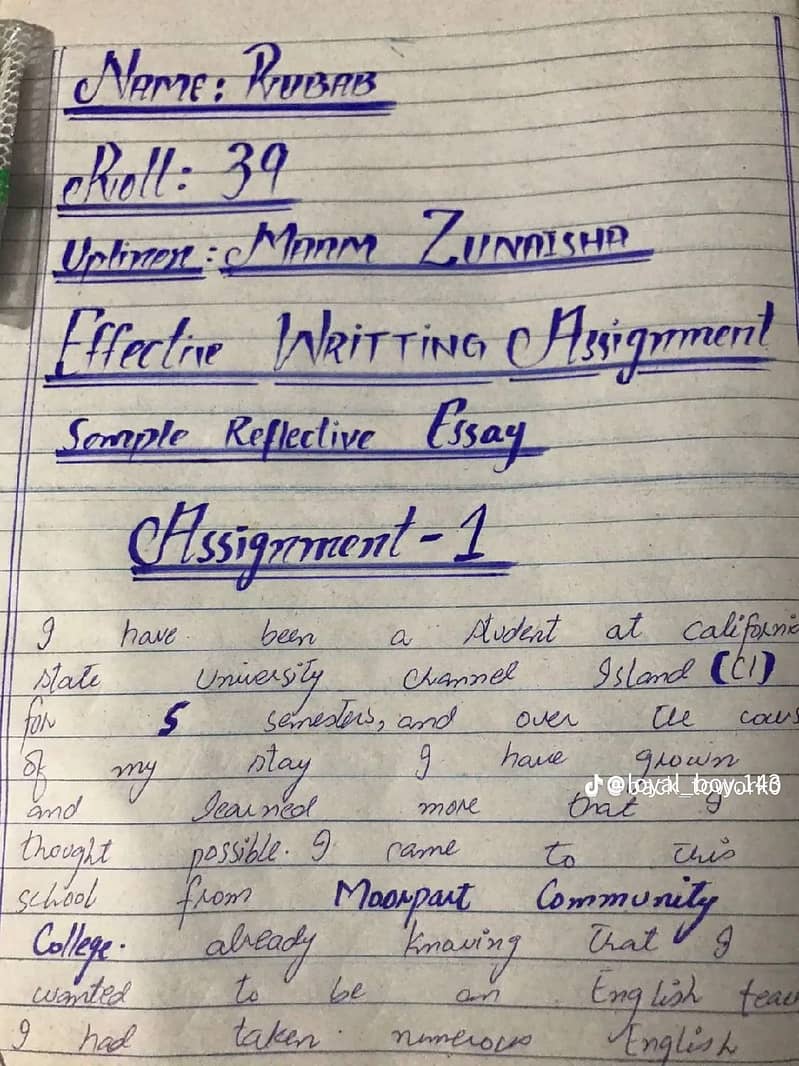 NAME: RUBAB
Roll: 39
Upliner: MAAM ZUNAISHA
Effective WRITTING Assignment
Sample Reflective Essay
Assignment-1
I have been a student at california
state University channel Island (CI)
for 5 semesters, and over the cours
of my stay I have grown
and learned more that I
@loyal_boy_143
thought possible. I came to this
school from Moorpart Community
College. already knowing that I
wanted to be an English teac
I had taken numerous English